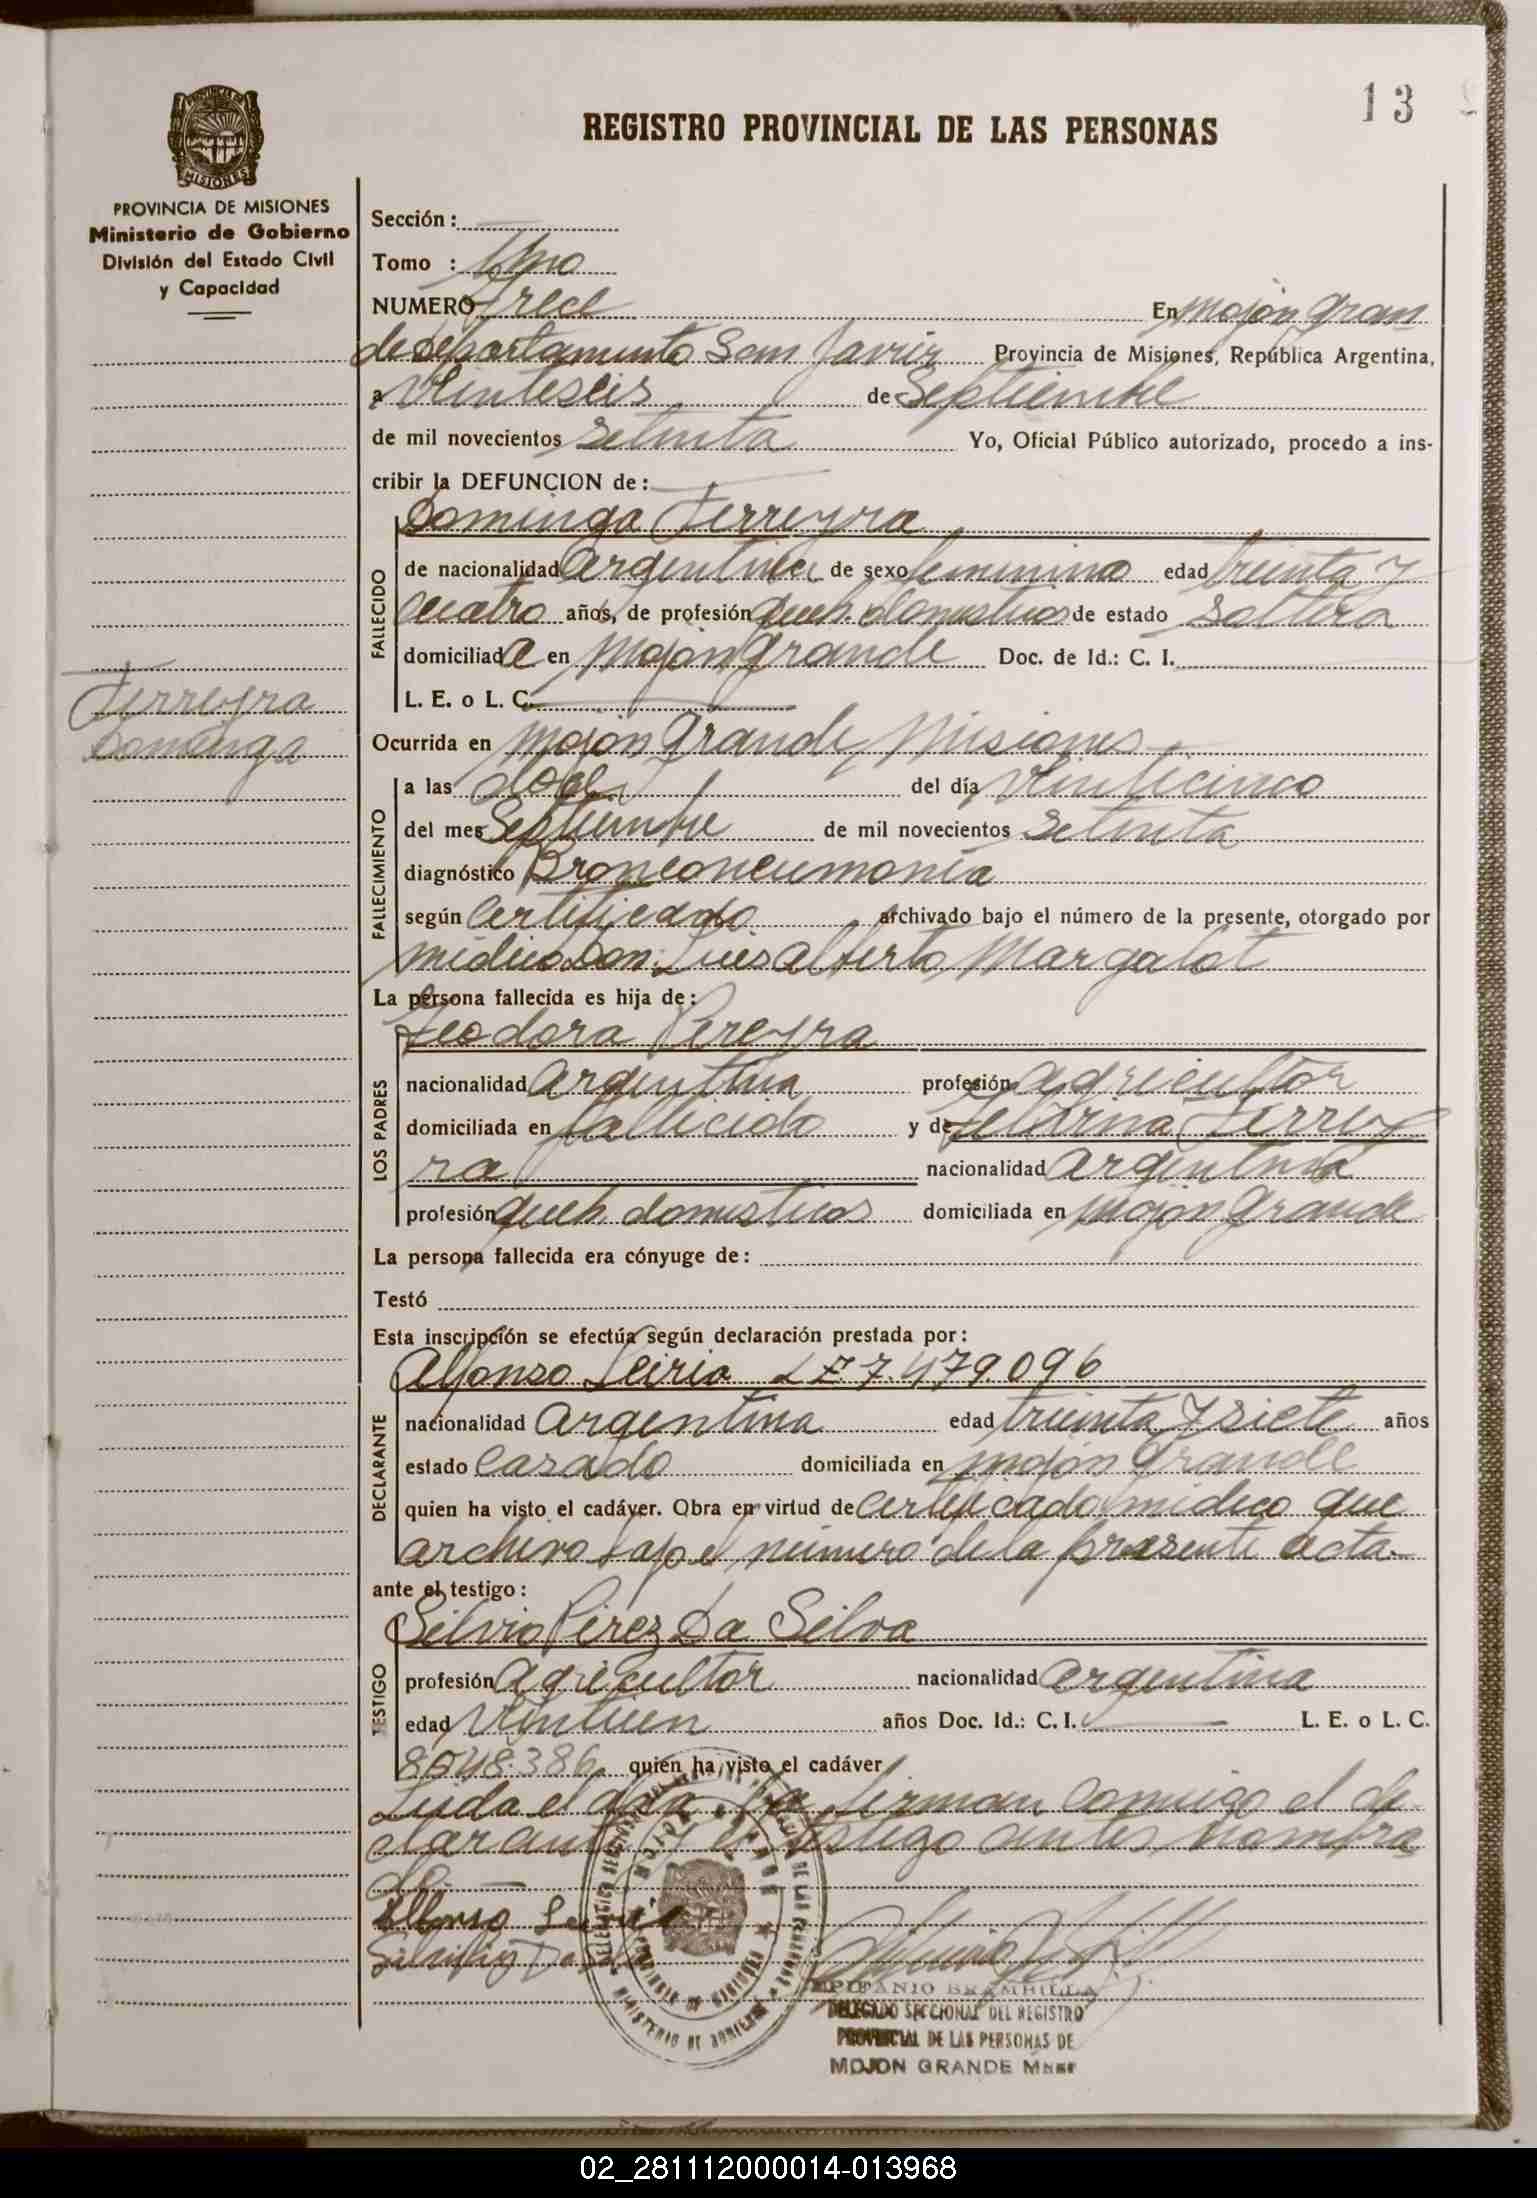 13
REGISTRO PROVINCIAL DE LAS PERSONAS
PROVINCIA DE MISIONES
Ministerio de Gobierno
División del Estado Civil
y Capacidad
Sección:
Tomo : Uno
NUMERO Trece En Mojón Gran
de departamento San Javier Provincia de Misiones, República Argentina,
a Veintiseis de Septiembre
de mil novecientos setenta Yo, Oficial Público autorizado, procedo a ins-
cribir la DEFUNCION de:
Dominga Ferreyra
FALLECIDO
de nacionalidad Argentina de sexo femenino edad treinta y
cuatro años, de profesión queh. domesticos de estado soltera
domiciliada en Mojón Grande Doc. de Id.: C. I.
L. E. o L. C.
Ferreyra
Dominga
Ocurrida en Mojón Grande, Misiones
FALLECIMIENTO
a las doce del día Veinticinco
del mes Septiembre de mil novecientos setenta
diagnóstico Bronconeumonia
según Certificado archivado bajo el número de la presente, otorgado por
médico Don: Luis Alberto Margalot
La persona fallecida es hija de:
LOS PADRES
Teodora Pereyra
nacionalidad Argentina profesión Agricultor
domiciliada en fallecido y de Ferrey
ra nacionalidad Argentina
profesión queh domesticos domiciliada en Mojón Grande
La persona fallecida era cónyuge de:
Testó
Esta inscripción se efectúa según declaración prestada por:
DECLARANTE
Alfonso Leiria L E. 7.479096
nacionalidad Argentina edad treinta y siete años
estado Casado domiciliada en Mojón Grande
quien ha visto el cadáver. Obra en virtud de certificado médico que
archivo bajo el número de la presente acta
ante el testigo:
TESTIGO
Silvio Pirez Da Silva
profesión Agricultor nacionalidad Argentina
edad Veintiun años Doc. Id.: C. I. L. E. o L. C.
8548386 quien ha visto el cadáver
Leida el acta la firman conmigo el de
clarante y el testigo antes nombra
do
Alfonso Leiria
EPIFANIO BRAMBILLA
DELEGADO SECCIONAL DEL REGISTRO
PROVINCIAL DE LAS PERSONAS DE
MOJON GRANDE Mnes
02_281112000014-013968